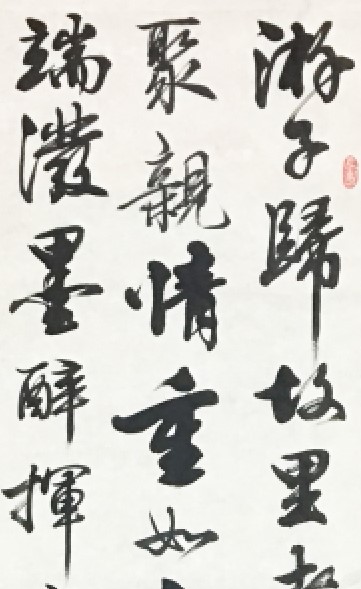 游子歸故里
聚親情重如
端潑墨醉揮